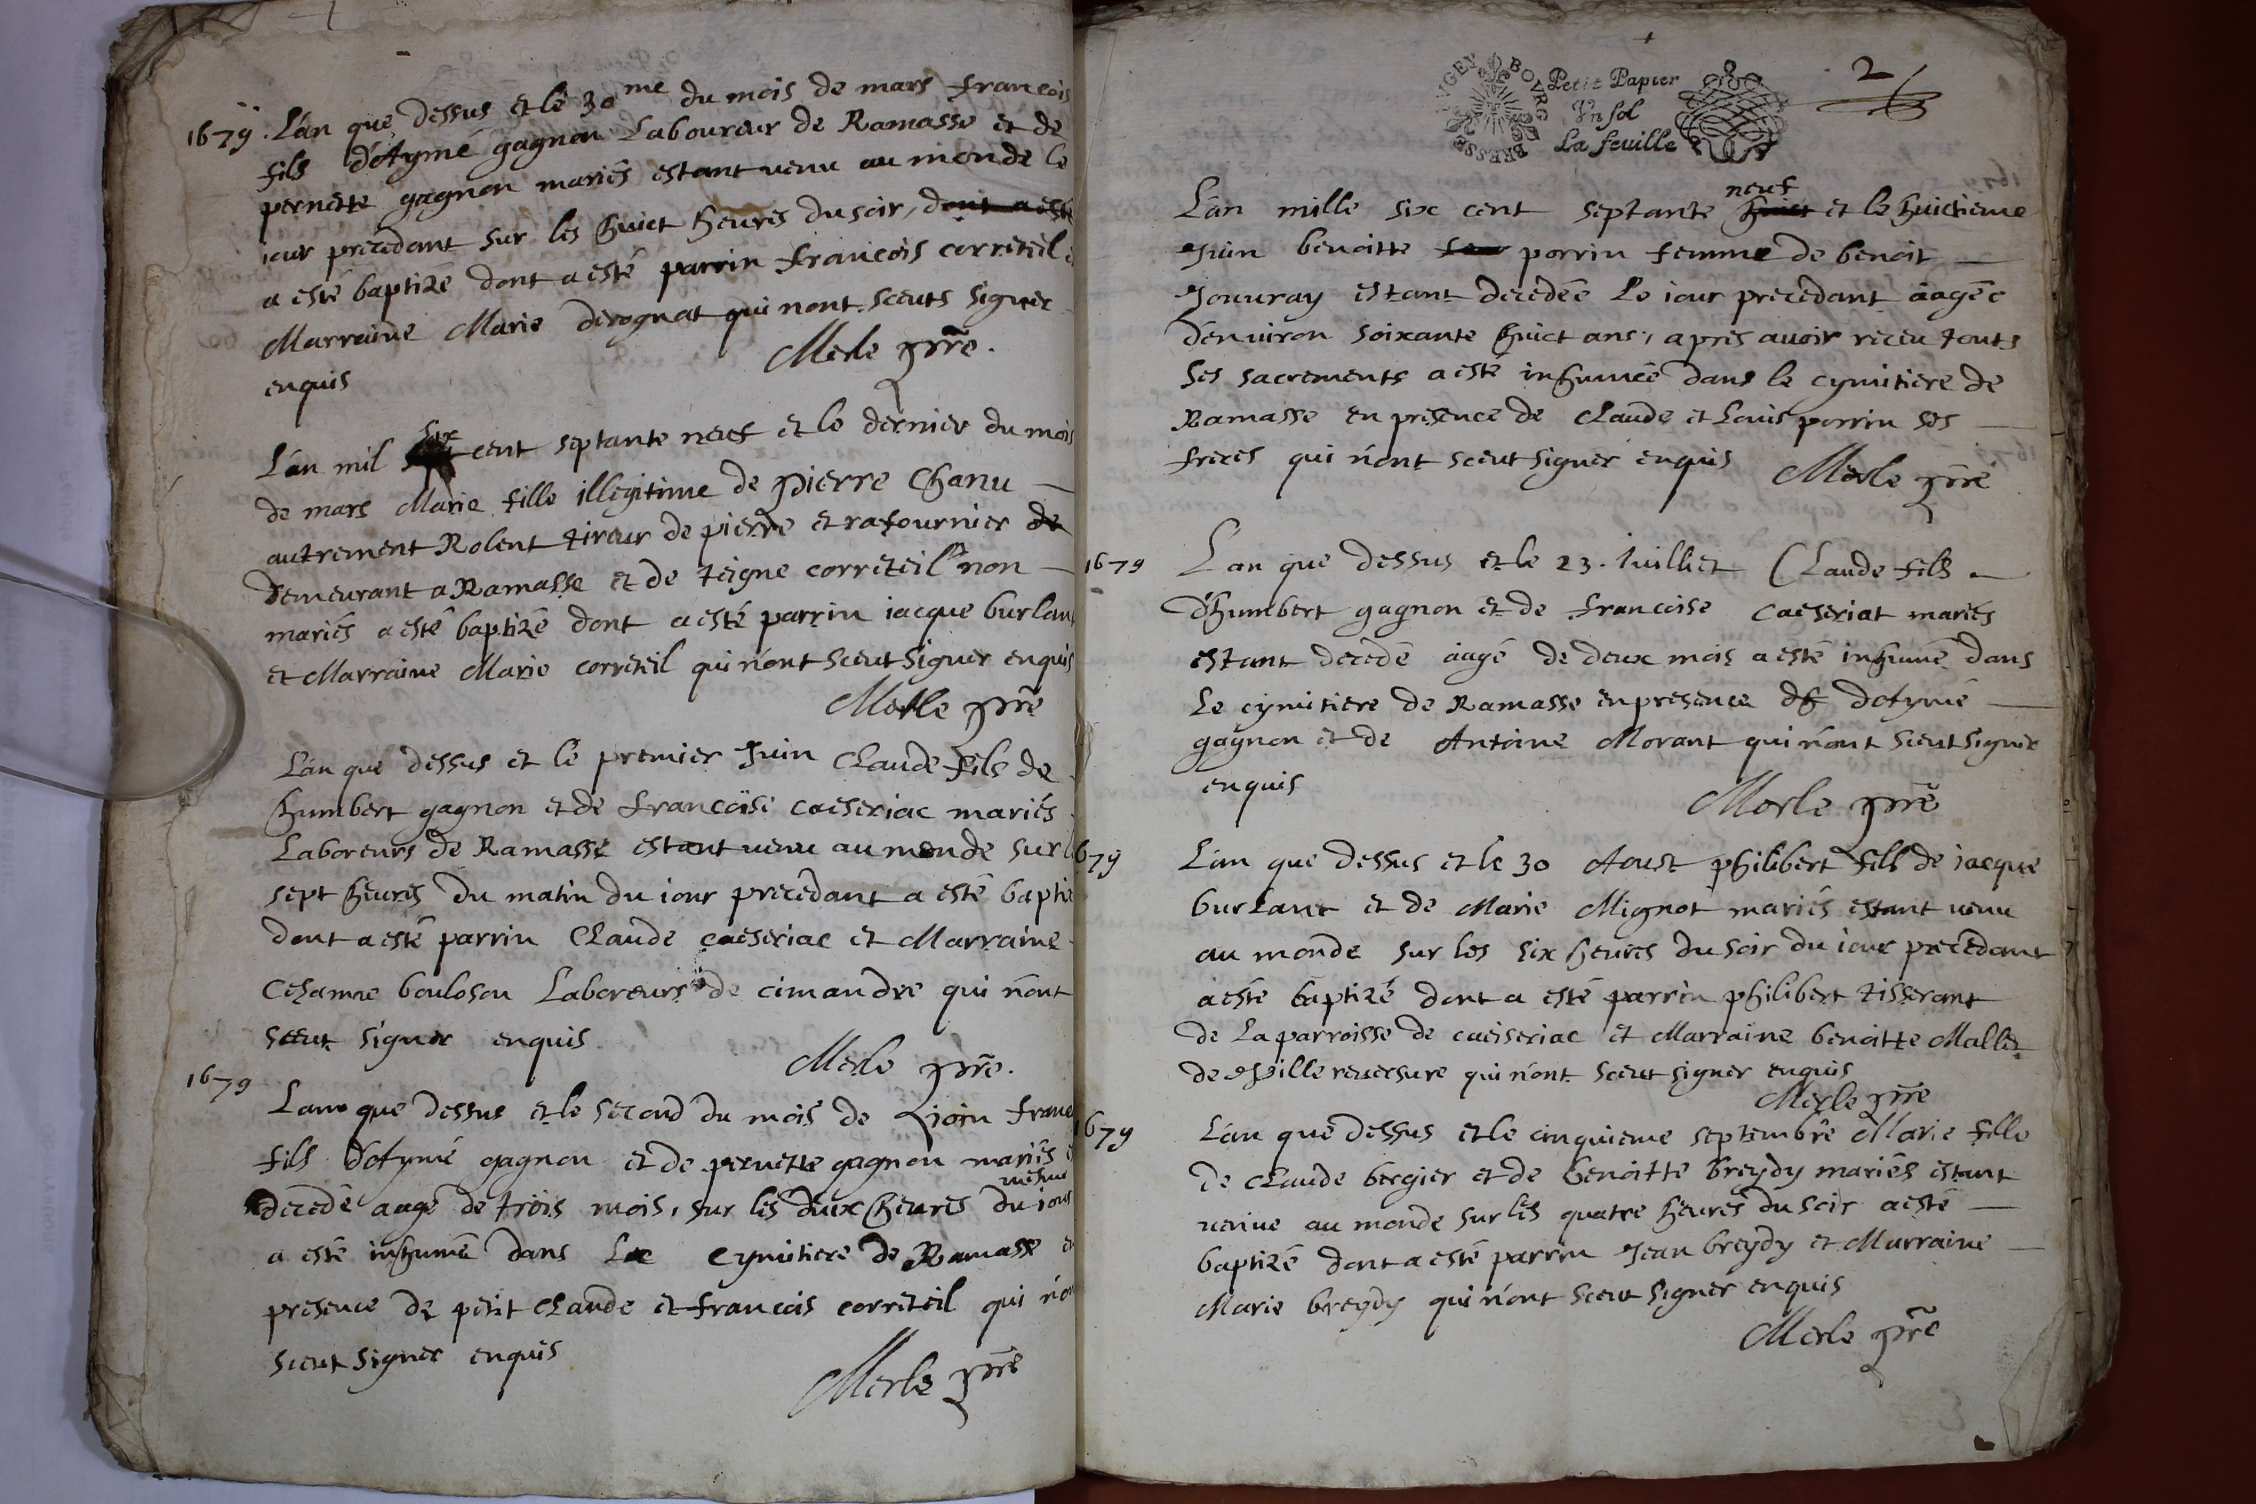 1679. L'an que dessus et le 30me du mois de mars francois
fils d'Aymé gagnon Laboureur de Ramasse et de
pernette gagnon mariés estant venu au monde le
iour precedant sur les huict heures du soir, dont a esté
a esté baptizé dont a esté parrin francois correteil
Marraine Marie derognat qui nont sceuts signer
enquis
Merle pr̃e.
L'an mil six cent septante neuf et le dernier du mois
de mars Marie fille illegitime de pierre Chanu
autrement Rolent tireur de pierre et rafournier de
demeurant a Ramasse et de teigne correteil non
mariés a esté baptizé dont a esté parrin iacque burlan
et Marraine Marie correteil qui n'ont sceut signer enquis
Merle pr̃e
L'an que dessus et le premier Juin Claude fils de
humbert gagnon et de francoise caeseriac mariés
Laboreurs de Ramasse estant venu au monde sur l
sept heures du matin du iour precedant a esté baptiz
dont a esté parrin Claude caeseriac et Marraine
boulosou Laboreurs de cimandre qui n'ont
sceut signer enquis
Merle pr̃e.
1679
L'an que dessus et le second du mois de
fils d'Aymé gagnon et de pernette gagnon mariés
decedé aagé de trois mois, sur les deux heures du mesme iour
a esté inhumé dans Le Cymitiere de Ramasse en
presence de petit Claude et francois correteil qui n'on
sceut signer enquis
Merle pr̃e
BVGEY BOVRG BRESSE
Petit Papier
Vn sol
La feuille
2
L'an mille six cent septante huict neuf et le huictieme
Juin benoitte porrin femme de benoit
Jouvray estant decedée Le iour precedant aagée
d'environ soixante huict ans, apres avoir receu touts
ses sacrements a esté inhumée dans le cymitiere de
Ramasse en presence de Claude et Louis porrin ses
freres qui n'ont sceut signer enquis
Merle pr̃e
1679
L'an que dessus et le 23. Juilliet Claude fils
d'humbert gagnon et de francoise caeseriat mariés
estant decedé aagé de deux mois a esté inhumé dans
Le cymitiere de Ramasse en presence de d'Aymé
gagnon et de Antoine Morant qui n'ont sceut signer
enquis
Merle pr̃e
1679
L'an que dessus et le 30 Aoust philibert fils de iacque
burlanc et de Marie Mignot mariés estant venu
au monde sur les six heures du soir du iour precedant
a esté baptizé dont a esté parrin philibert tisserant
de La parroisse de caeiseriac et Marraine benoitte Mallet
de Ville reversure qui n'ont sceut signer enquis
Merle pr̃e
1679
L'an que dessus et le cinquieme septembre Marie fille
de Claude bergier et de benoitte breydy mariés estant
venue au monde sur les quatre heures du soir a esté
baptizé dont a esté parrin Jean breydy et Marraine
Marie breydy qui n'ont sceut signer enquis
Merle pr̃e